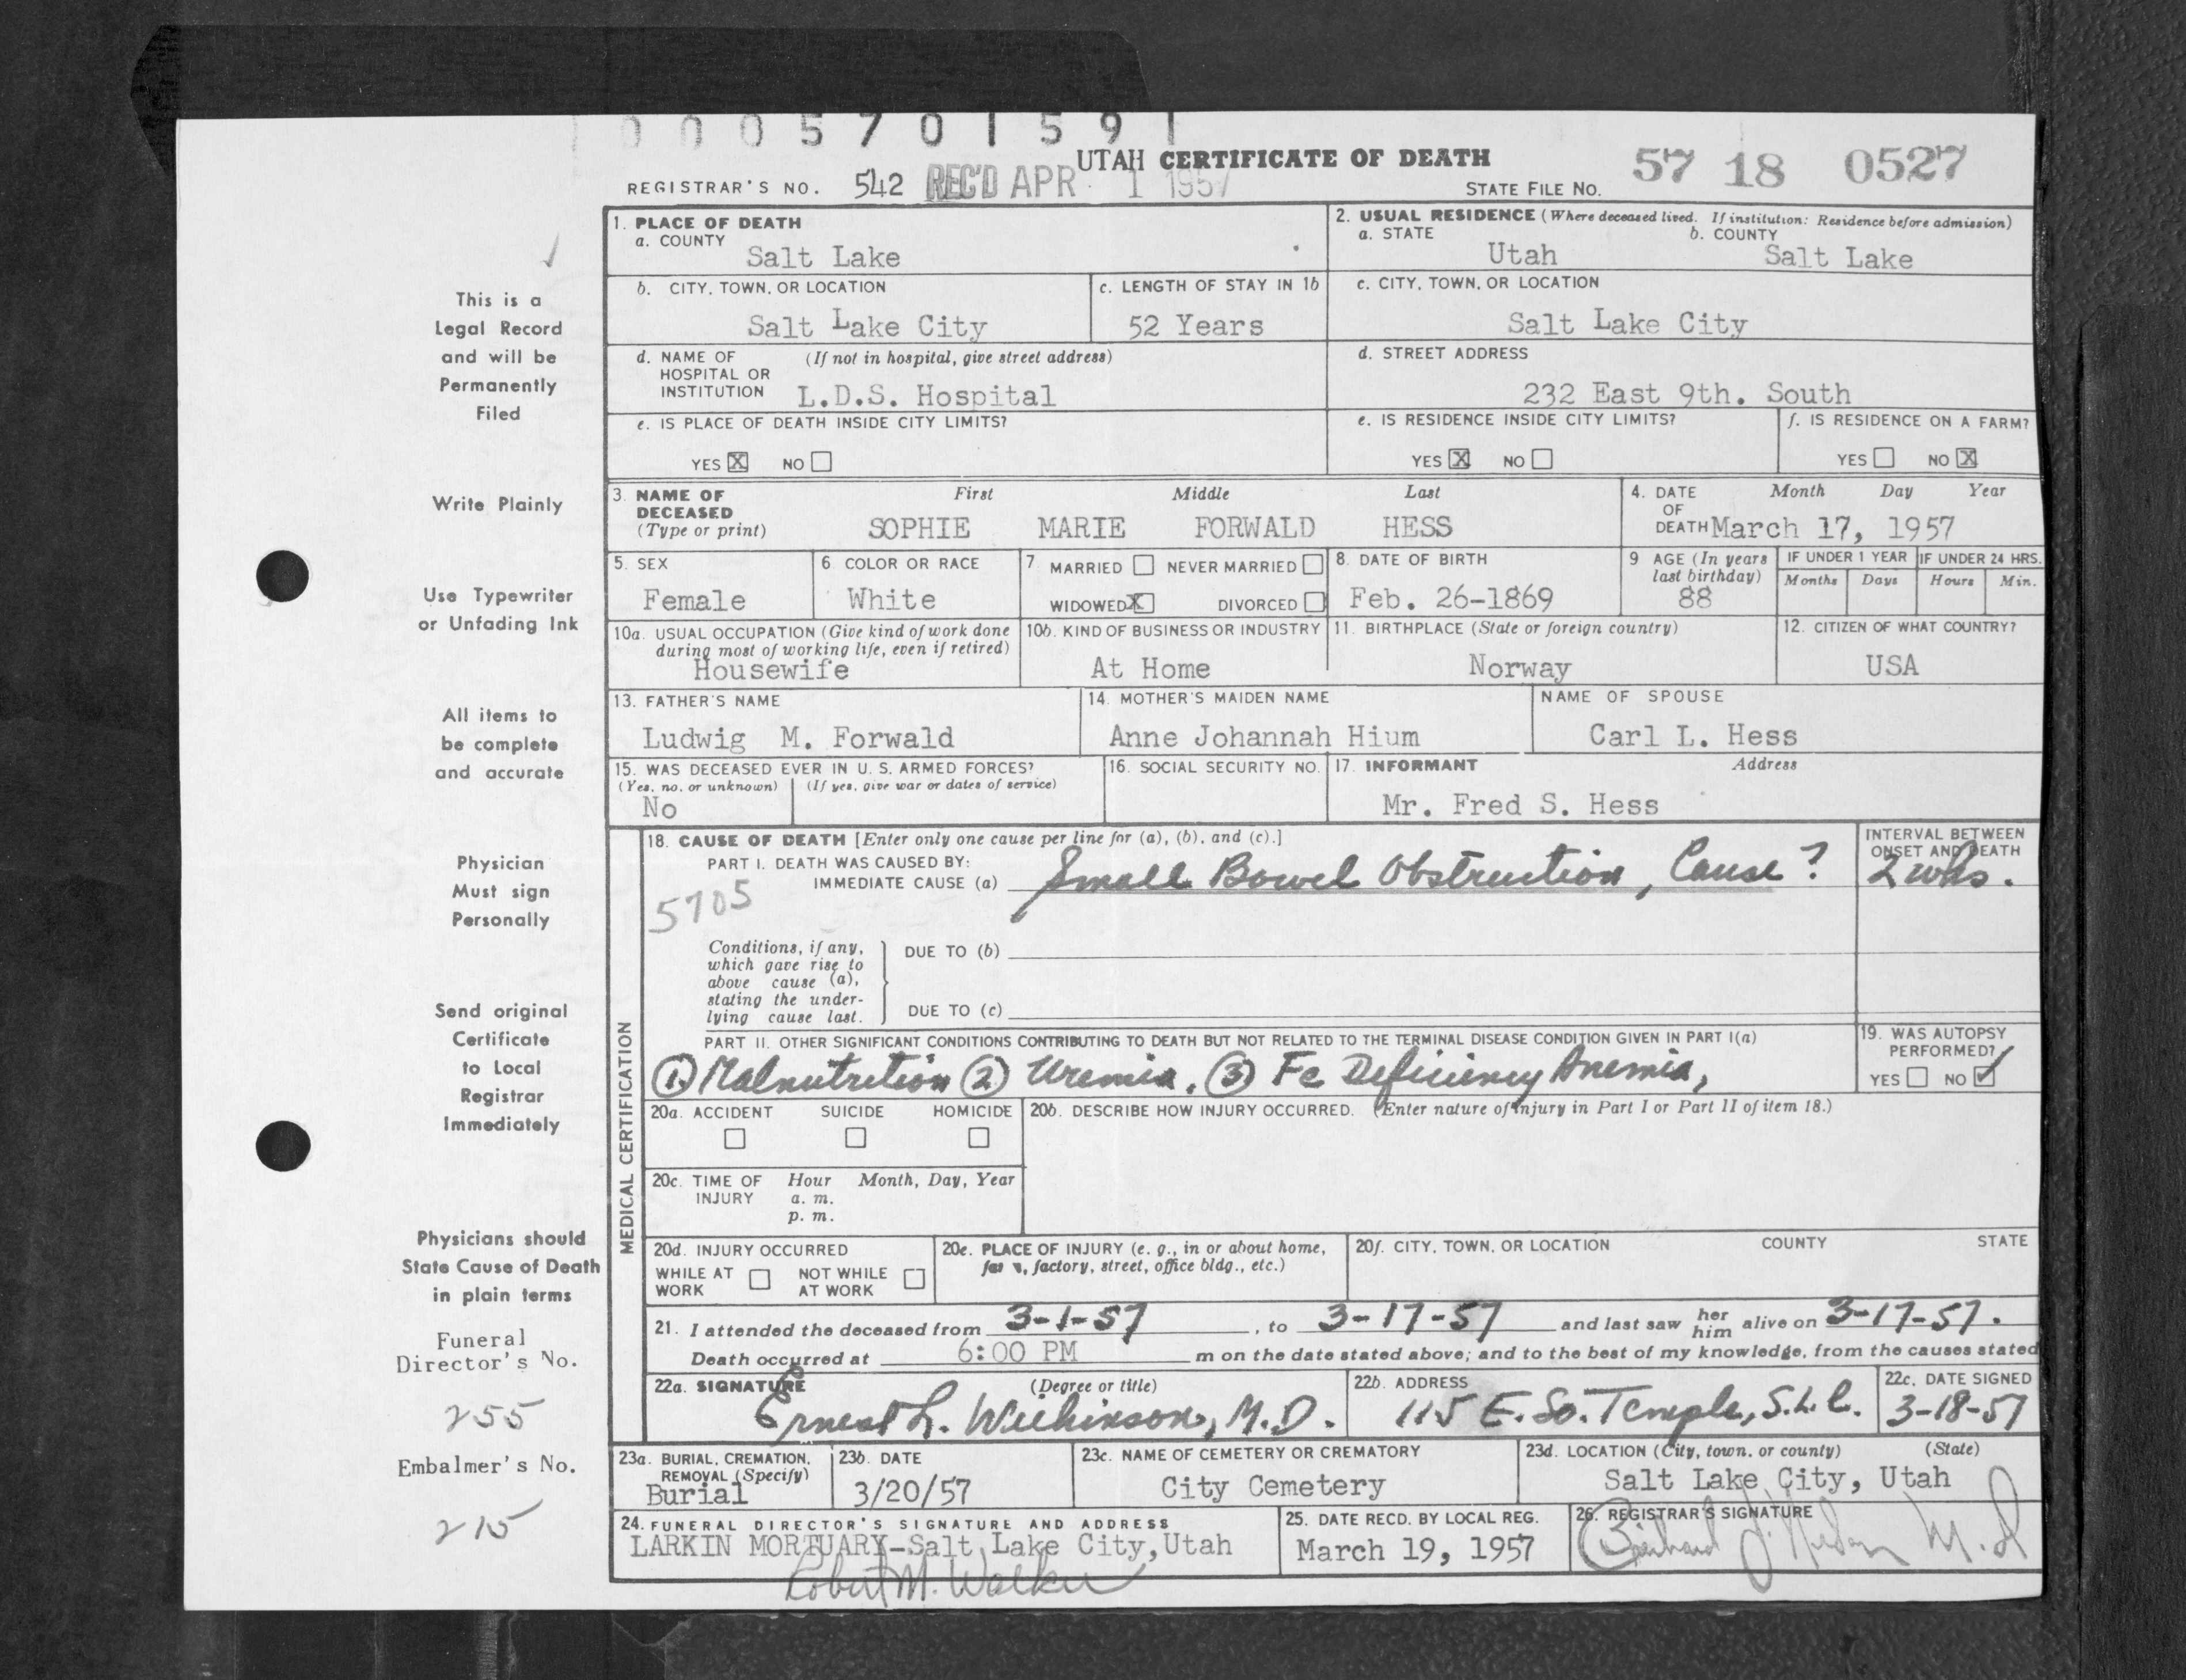 0005701591
UTAH CERTIFICATE OF DEATH
57 18 0527
REGISTRAR'S NO. 542 REC'D APR 1 1957 STATE FILE NO.
1. PLACE OF DEATH
a. COUNTY
Salt Lake
2. USUAL RESIDENCE (Where deceased lived. If institution: Residence before admission)
a. STATE b. COUNTY
Utah Salt Lake
b. CITY, TOWN, OR LOCATION
Salt Lake City
c. LENGTH OF STAY IN 1b
52 Years
c. CITY, TOWN, OR LOCATION
Salt Lake City
d. NAME OF (If not in hospital, give street address)
HOSPITAL OR
INSTITUTION L.D.S. Hospital
d. STREET ADDRESS
232 East 9th. South
e. IS PLACE OF DEATH INSIDE CITY LIMITS?
YES X NO
e. IS RESIDENCE INSIDE CITY LIMITS?
YES X NO
f. IS RESIDENCE ON A FARM?
YES NO X
3. NAME OF First Middle Last
DECEASED
(Type or print) SOPHIE MARIE FORWALD HESS
4. DATE Month Day Year
OF
DEATH March 17, 1957
5. SEX
Female
6 COLOR OR RACE
White
7 MARRIED NEVER MARRIED
WIDOWED X DIVORCED
8. DATE OF BIRTH
Feb. 26-1869
9 AGE (In years
last birthday)
88
IF UNDER 1 YEAR IF UNDER 24 HRS.
Months Days Hours Min.
10a. USUAL OCCUPATION (Give kind of work done
during most of working life, even if retired)
Housewife
10b. KIND OF BUSINESS OR INDUSTRY
At Home
11. BIRTHPLACE (State or foreign country)
Norway
12. CITIZEN OF WHAT COUNTRY?
USA
13. FATHER'S NAME
Ludwig M. Forwald
14. MOTHER'S MAIDEN NAME
Anne Johannah Hium
NAME OF SPOUSE
Carl L. Hess
15. WAS DECEASED EVER IN U. S. ARMED FORCES?
(Yes, no, or unknown) (If yes, give war or dates of service)
No
16. SOCIAL SECURITY NO.
17. INFORMANT Address
Mr. Fred S. Hess
MEDICAL CERTIFICATION
18. CAUSE OF DEATH [Enter only one cause per line for (a), (b), and (c).]
PART I. DEATH WAS CAUSED BY:
IMMEDIATE CAUSE (a) Small Bowel Obstruction, Cause?
5705
INTERVAL BETWEEN
ONSET AND DEATH
2 wks.
Conditions, if any,
which gave rise to
above cause (a),
stating the under-
lying cause last.
DUE TO (b)
DUE TO (c)
PART II. OTHER SIGNIFICANT CONDITIONS CONTRIBUTING TO DEATH BUT NOT RELATED TO THE TERMINAL DISEASE CONDITION GIVEN IN PART I(a)
① Malnutrition ② Uremia. ③ Fe Deficiency Anemia,
19. WAS AUTOPSY
PERFORMED?
YES NO ✓
20a. ACCIDENT SUICIDE HOMICIDE
20b. DESCRIBE HOW INJURY OCCURRED. (Enter nature of injury in Part I or Part II of item 18.)
20c. TIME OF Hour Month, Day, Year
INJURY a. m.
p. m.
20d. INJURY OCCURRED
WHILE AT NOT WHILE
WORK AT WORK
20e. PLACE OF INJURY (e. g., in or about home,
factory, street, office bldg., etc.)
20f. CITY, TOWN, OR LOCATION COUNTY STATE
21. I attended the deceased from 3-1-57, to 3-17-57 and last saw her him alive on 3-17-57.
Death occurred at 6:00 PM m on the date stated above; and to the best of my knowledge, from the causes stated
22a. SIGNATURE (Degree or title)
Ernest L. Wilkinson, M.D.
22b. ADDRESS
115 E. So. Temple, S.L.C.
22c. DATE SIGNED
3-18-57
23a. BURIAL, CREMATION,
REMOVAL (Specify)
Burial
23b. DATE
3/20/57
23c. NAME OF CEMETERY OR CREMATORY
City Cemetery
23d. LOCATION (City, town, or county) (State)
Salt Lake City, Utah
24. FUNERAL DIRECTOR'S SIGNATURE AND ADDRESS
LARKIN MORTUARY-Salt Lake City, Utah
Robert M. Walker
25. DATE RECD. BY LOCAL REG.
March 19, 1957
26. REGISTRAR'S SIGNATURE
M.D
This is a
Legal Record
and will be
Permanently
Filed
Write Plainly
Use Typewriter
or Unfading Ink
All items to
be complete
and accurate
Physician
Must sign
Personally
Send original
Certificate
to Local
Registrar
Immediately
Physicians should
State Cause of Death
in plain terms
Funeral
Director's No.
255
Embalmer's No.
215